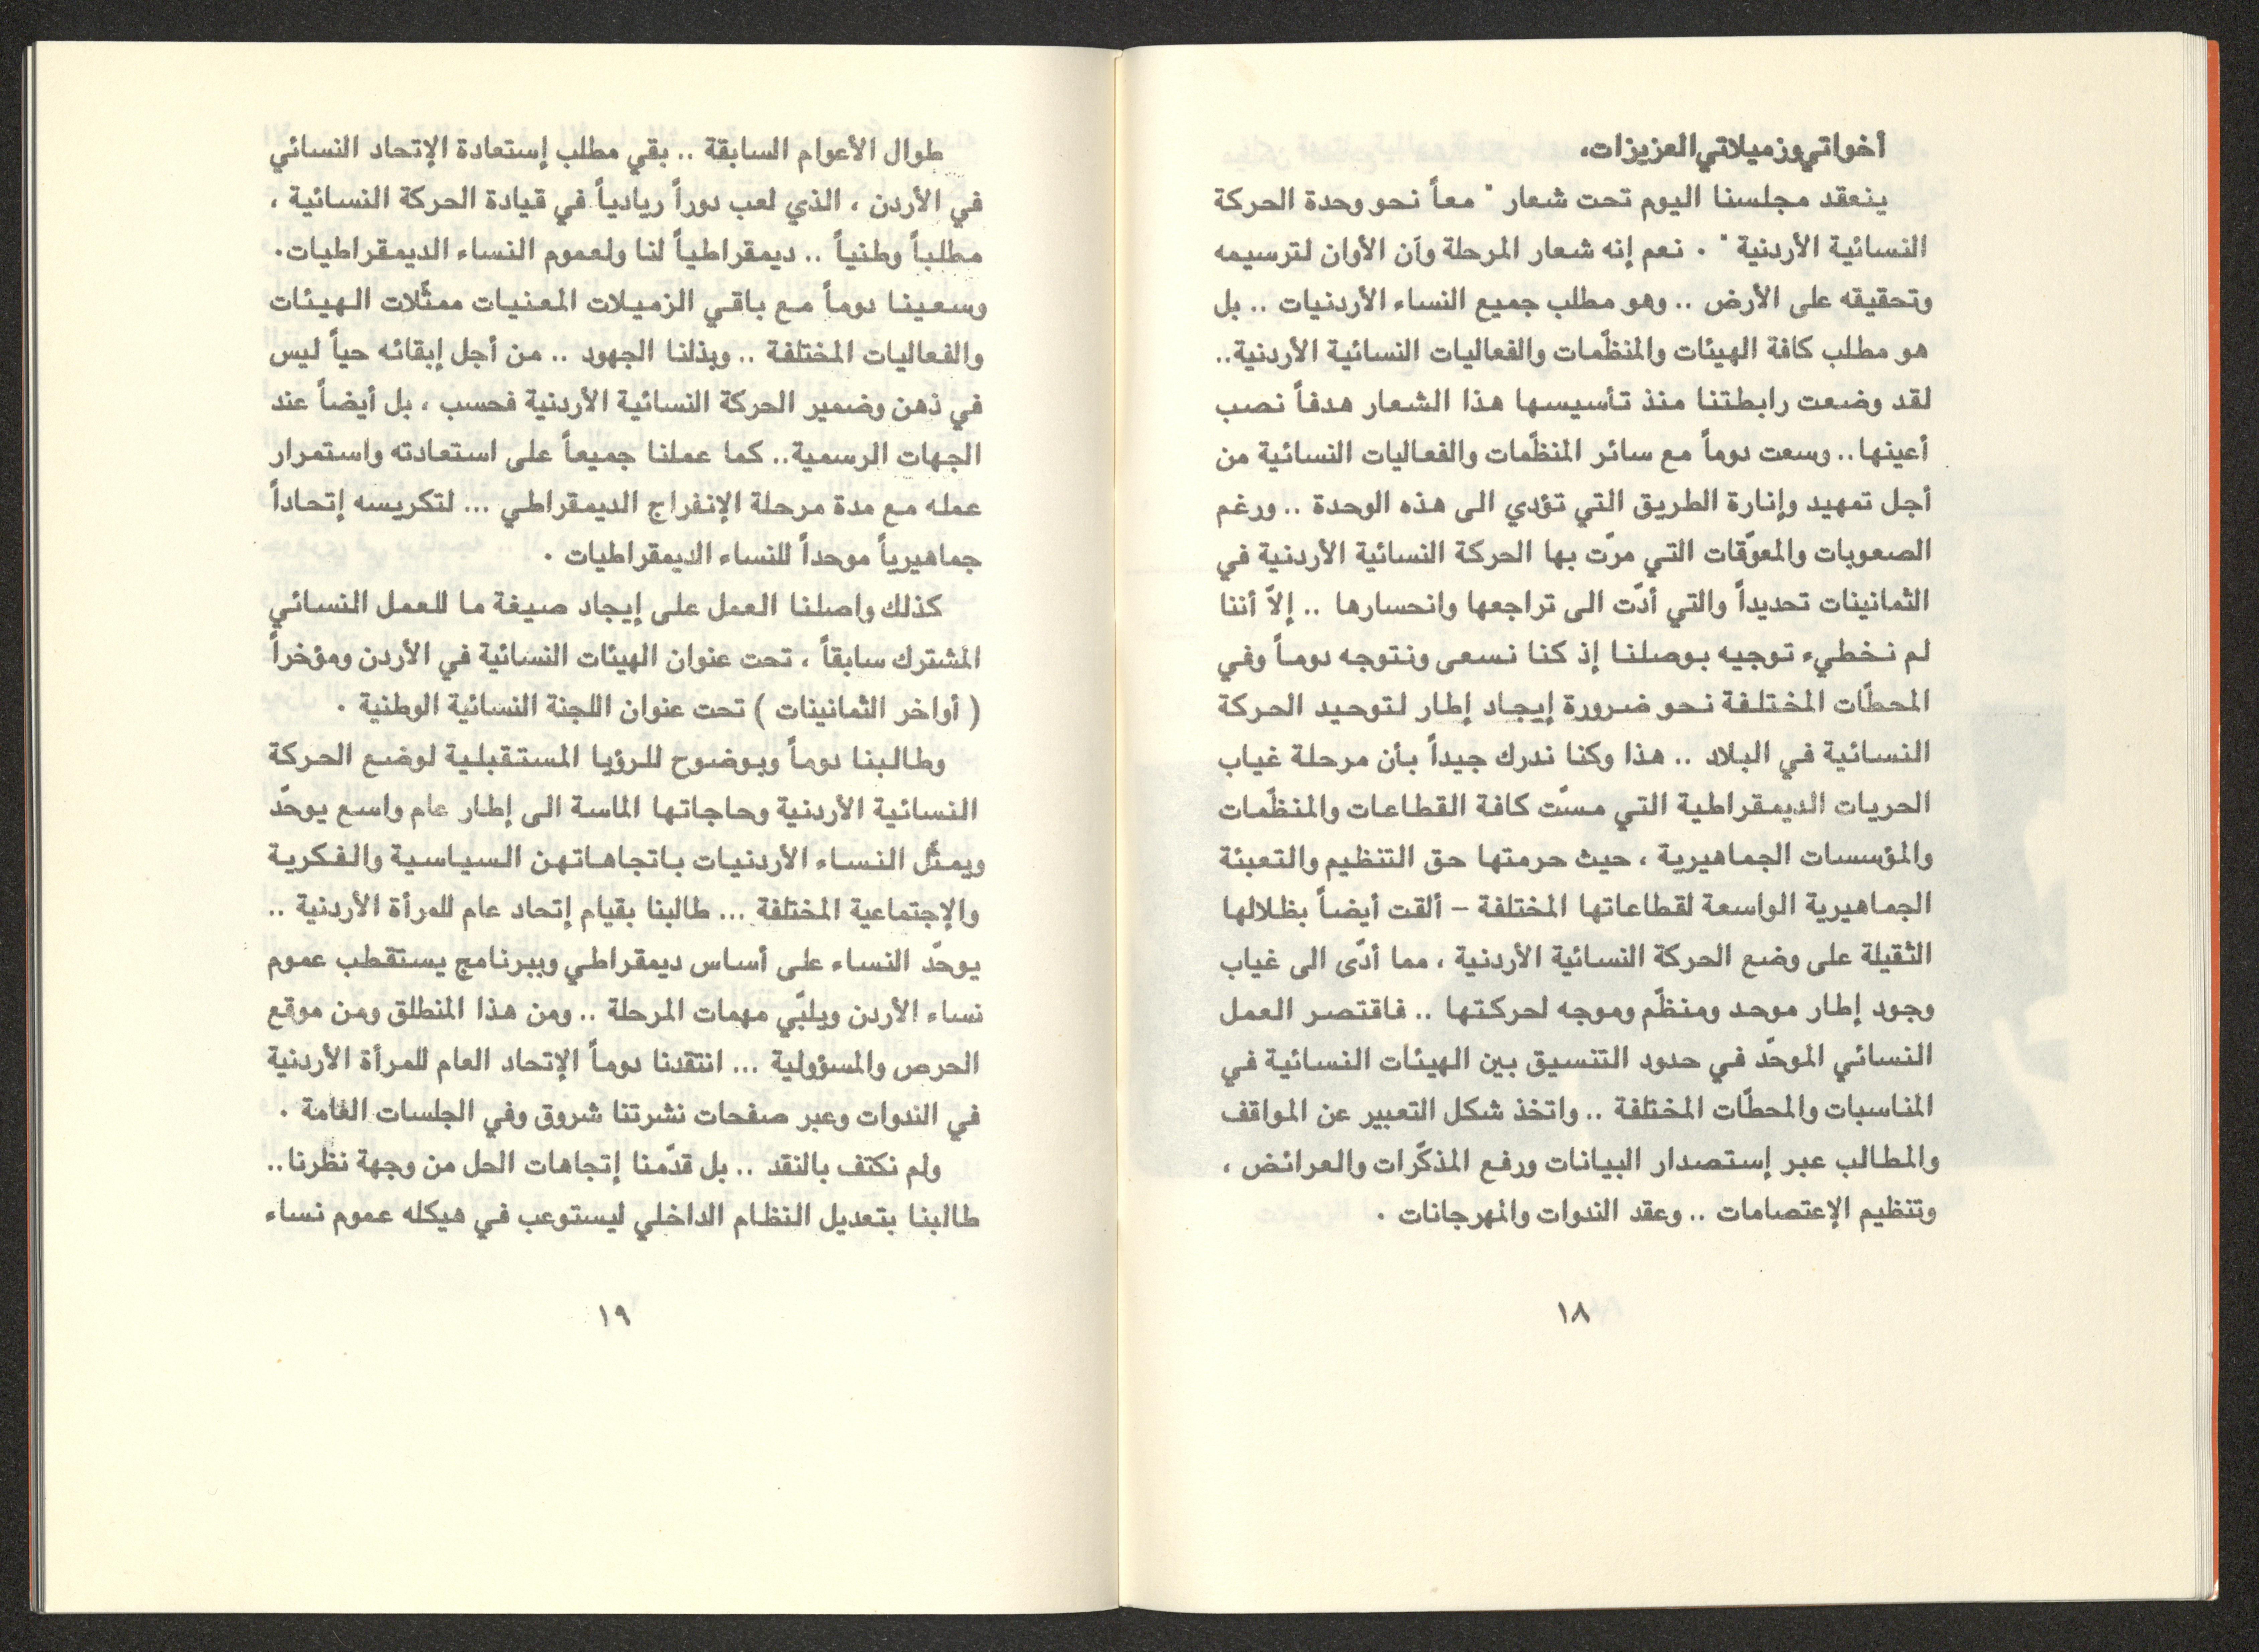 أخواتي وزميلاتي العزيزات،
ينعقد مجلسنا اليوم تحت شعار " معاً نحو وحدة الحركة
النسائية الأردنية " . نعم إنه شعار المرحلة وآن الأوان لترسيمه
وتحقيقه على الأرض .. وهو مطلب جميع النساء الأردنيات .. بل
هو مطلب كافة الهيئات والمنظّمات والفعاليات النسائية الأردنية..
لقد وضعت رابطتنا منذ تأسيسها هذا الشعار هدفاً نصب
أعينها.. وسعت دوماً مع سائر المنظّمات والفعاليات النسائية من
أجل تمهيد وإنارة الطريق التي تؤدي الى هذه الوحدة .. ورغم
الصعوبات والمعوّقات التي مرّت بها الحركة النسائية الأردنية في
الثمانينات تحديداً والتي أدّت الى تراجعها وانحسارها .. إلاّ أننا
لم نخطيء توجيه بوصلنا إذ كنا نسعى ونتوجه دوماً وفي
المحطّات المختلفة نحو ضرورة إيجاد إطار لتوحيد الحركة
النسائية في البلاد .. هذا وكنا ندرك جيداً بأن مرحلة غياب
الحريات الديمقراطية التي مسّت كافة القطاعات والمنظّمات
والمؤسسات الجماهيرية ، حيث حرمتها حق التنظيم والتعبئة
الجماهيرية الواسعة لقطاعاتها المختلفة – ألقت أيضاً بظلالها
الثقيلة على وضع الحركة النسائية الأردنية ، مما أدّى الى غياب
وجود إطار موحد ومنظّم وموجه لحركتها .. فاقتصر العمل
النسائي الموحّد في حدود التنسيق بين الهيئات النسائية في
المناسبات والمحطّات المختلفة .. واتخذ شكل التعبير عن المواقف
والمطالب عبر إستصدار البيانات ورفع المذكّرات والعرائض ،
وتنظيم الإعتصامات .. وعقد الندوات والمهرجانات .
١٨
طوال الأعوام السابقة .. بقي مطلب إستعادة الإتحاد النسائي
في الأردن ، الذي لعب دوراً ريادياً في قيادة الحركة النسائية ،
مطلباً وطنياً .. ديمقراطياً لنا ولعموم النساء الديمقراطيات.
وسعينا دوماً مع باقي الزميلات المعنيات ممثّلات الهيئات
والفعاليات المختلفة .. وبذلنا الجهود .. من أجل إبقائه حياً ليس
في ذهن وضمير الحركة النسائية الأردنية فحسب ، بل أيضاً عند
الجهات الرسمية.. كما عملنا جميعاً على استعادته واستمرار
عمله مع مدة مرحلة الإنفراج الديمقراطي ... لتكريسه إتحاداً
جماهيرياً موحداً للنساء الديمقراطيات .
كذلك واصلنا العمل على إيجاد صيغة ما للعمل النسائي
المشترك سابقاً ، تحت عنوان الهيئات النسائية في الأردن ومؤخراً
( أواخر الثمانينات ) تحت عنوان اللجنة النسائية الوطنية .
وطالبنا دوماً وبوضوح للرؤيا المستقبلية لوضع الحركة
النسائية الأردنية وحاجاتها الماسة الى إطار عام واسع يوحّد
ويمثّل النساء الأردنيات باتجاهاتهن السياسية والفكرية
والإجتماعية المختلفة ... طالبنا بقيام إتحاد عام للمرأة الأردنية ..
يوحّد النساء على أساس ديمقراطي وببرنامج يستقطب عموم
نساء الأردن ويلبّي مهمات المرحلة .. ومن هذا المنطلق ومن موقع
الحرص والمسؤولية ... انتقدنا دوماً الإتحاد العام للمرأة الأردنية
في الندوات وعبر صفحات نشرتنا شروق وفي الجلسات العامة .
ولم نكتف بالنقد .. بل قدّمنا إتجاهات الحل من وجهة نظرنا..
طالبنا بتعديل النظام الداخلي ليستوعب في هيكله عموم نساء
١٩